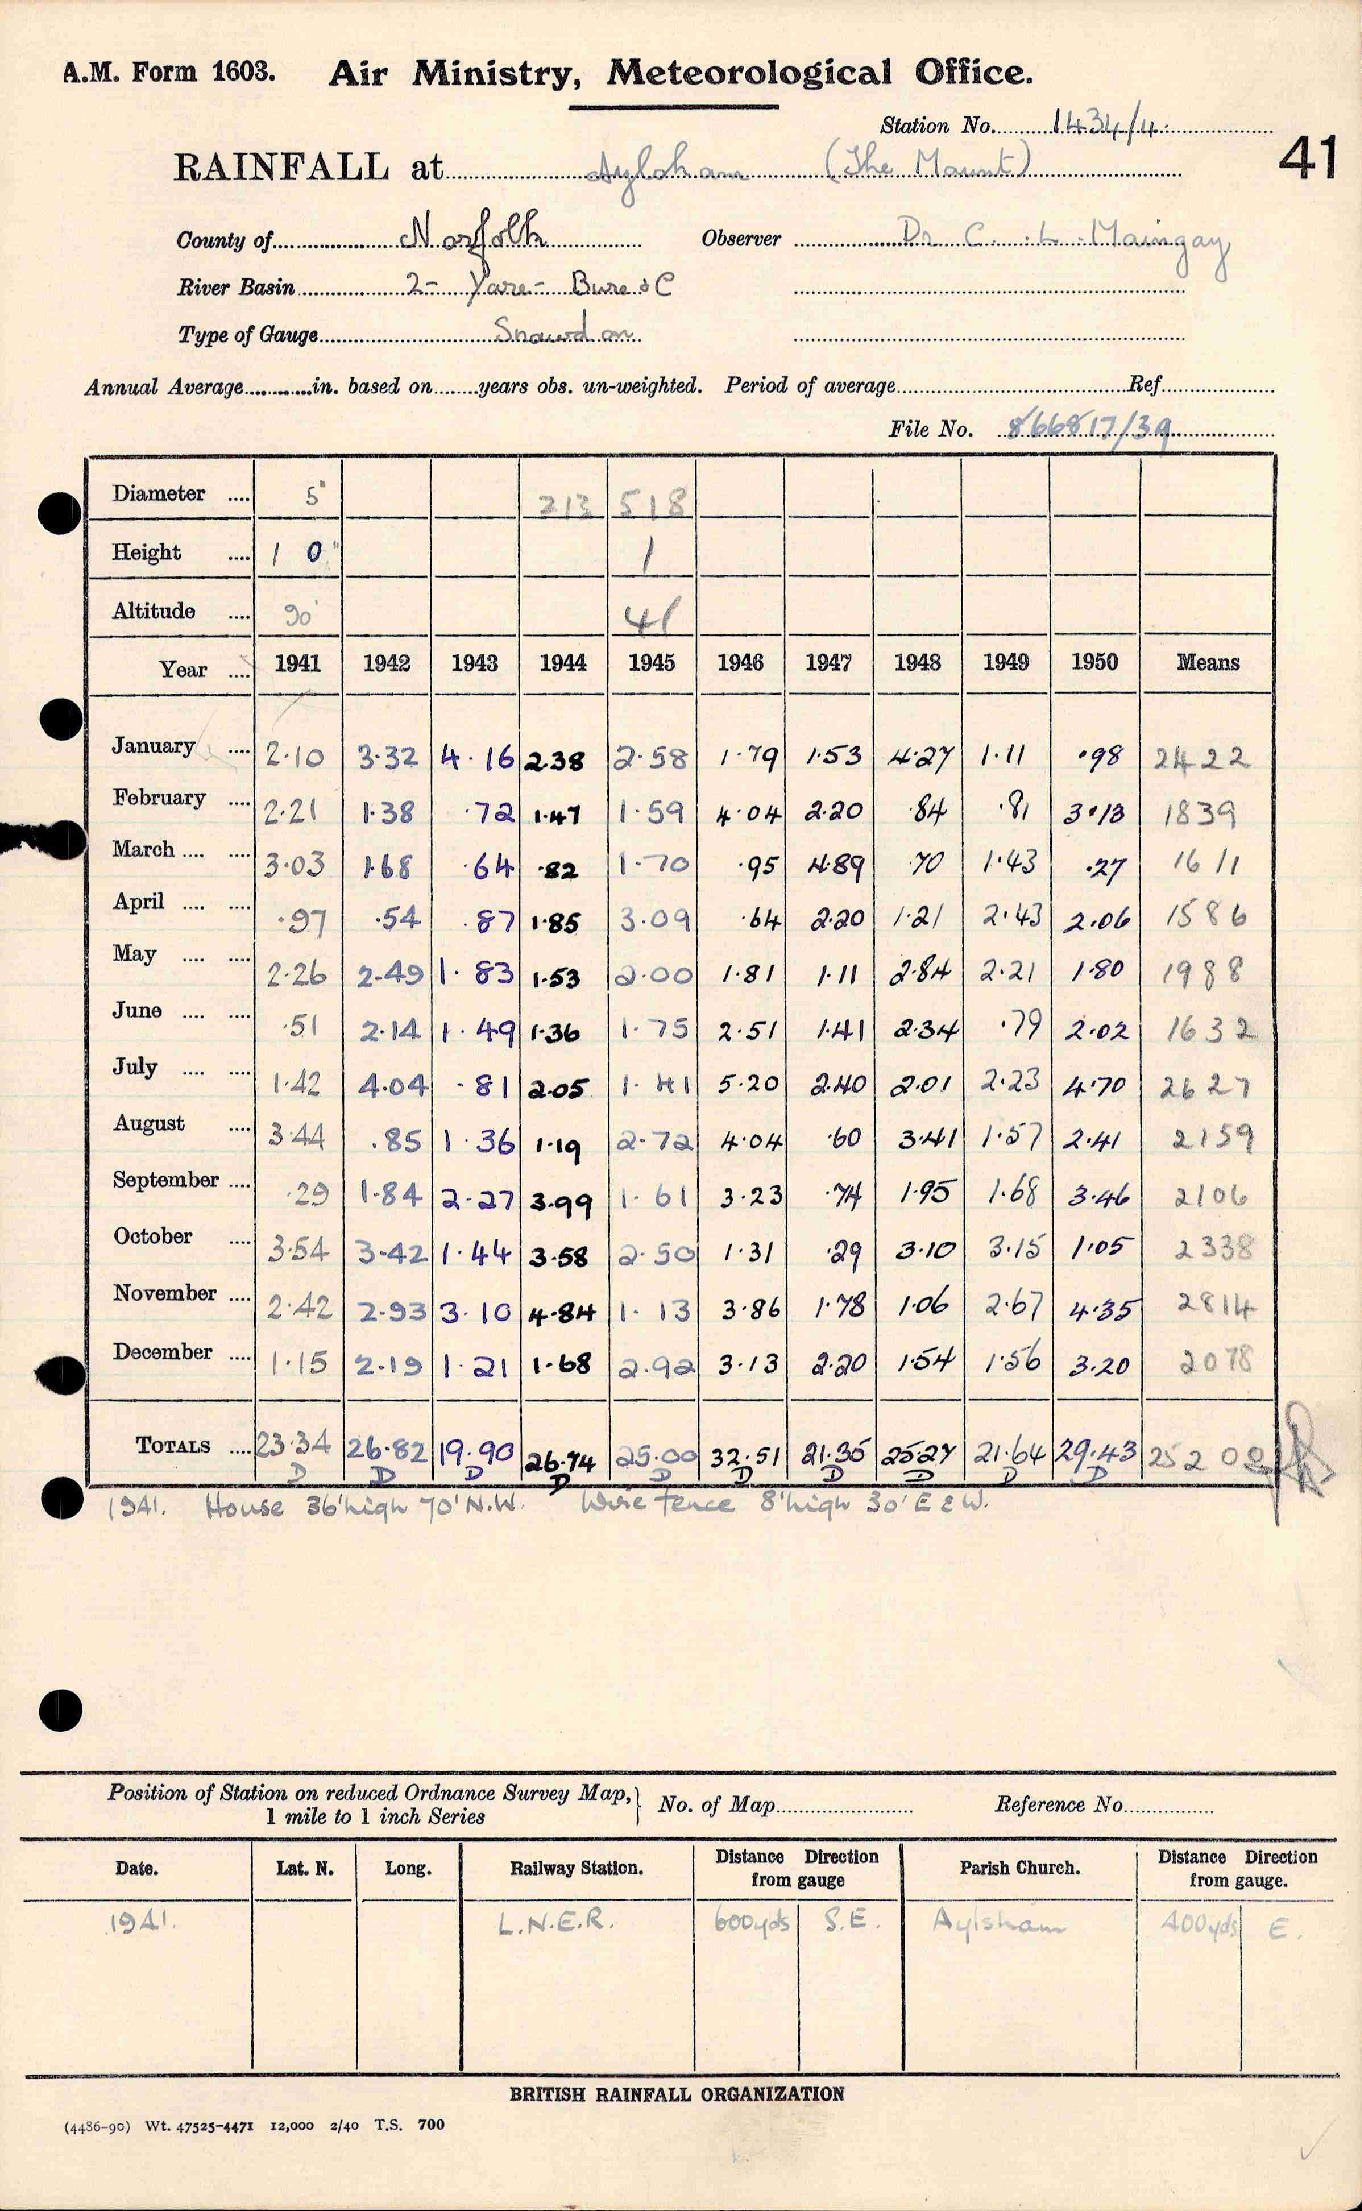 A.M. Form 1603. Air Ministry, Meteorological Office.
Station No. 1434/4.
41
RAINFALL at Aylsham (The Mount)
County of Norfolk Observer Dr C. L. Maingay
River Basin 2- Yare- Bure &C
Type of Gauge Snowdon
Annual Average in. based on years obs. un-weighted. Period of average Ref.
File No. 866817/39
Diameter .... 5" 213 518
Height .... 1 0" 1
Altitude .... 90' 41
Year .... 1941 1942 1943 1944 1945 1946 1947 1948 1949 1950 Means
January .... 2.10 3.32 4.16 2.38 2.58 1.79 1.53 4.27 1.11 .98 2422
February .... 2.21 1.38 .72 1.47 1.59 4.04 2.20 .84 .81 3.13 1839
March .... .... 3.03 1.68 .64 .82 1.70 .95 4.89 .70 1.43 .27 1611
April .... .... .97 .54 .87 1.85 3.09 .64 2.20 1.21 2.43 2.06 1586
May .... .... 2.26 2.49 1.83 1.53 2.00 1.81 1.11 2.84 2.21 1.80 1988
June .... .... .51 2.14 1.49 1.36 1.75 2.51 1.41 2.34 .79 2.02 1632
July .... .... 1.42 4.04 .81 2.05 1.41 5.20 2.40 2.01 2.23 4.70 2627
August .... 3.44 .85 1.36 1.19 2.72 4.04 .60 3.41 1.57 2.41 2159
September .... .29 1.84 2.27 3.99 1.61 3.23 .74 1.95 1.68 3.46 2106
October .... 3.54 3.42 1.44 3.58 2.50 1.31 .29 3.10 3.15 1.05 2338
November .... 2.42 2.93 3.10 4.84 1.13 3.86 1.78 1.06 2.67 4.35 2814
December .... 1.15 2.19 1.21 1.68 2.92 3.13 2.20 1.54 1.56 3.20 2078
TOTALS .... 23.34 26.82 19.90 26.74 25.00 32.51 21.35 25.27 21.64 29.43 25200
D D D D D D D D D D
1941. House 36' high 70' N.W. Wire fence 8' high 30' E & W.
Position of Station on reduced Ordnance Survey Map, 1 mile to 1 inch Series } No. of Map Reference No.
Date. Lat. N. Long. Railway Station. Distance Direction from gauge Parish Church. Distance Direction from gauge.
1941. L.N.E.R. 600yds S.E. Aylsham 400yds E.
BRITISH RAINFALL ORGANIZATION
(4486-90) Wt. 47525-4471 12,000 2/40 T.S. 700